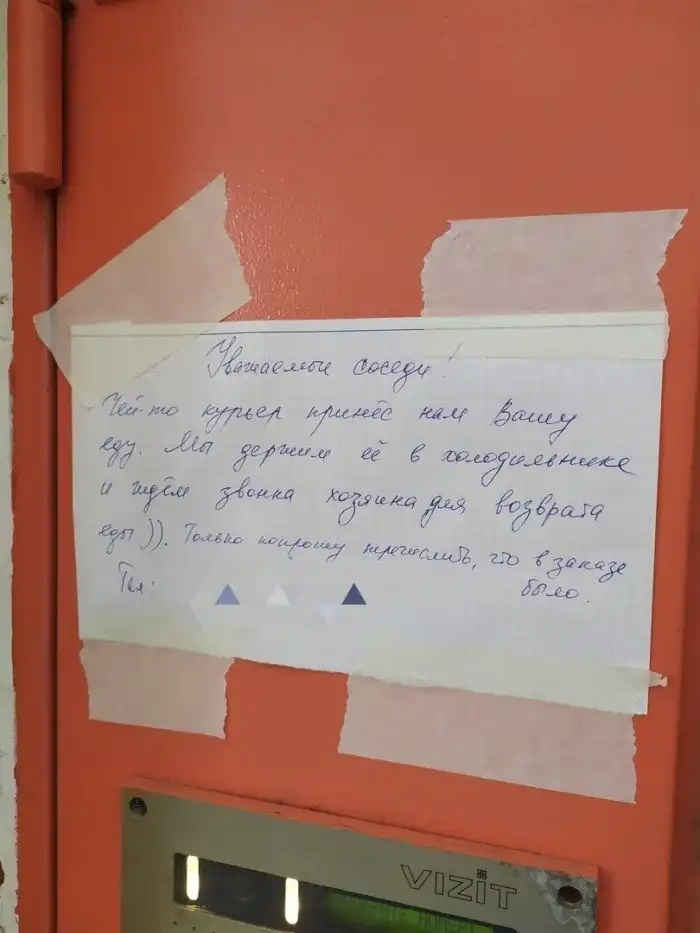 Уважаемые соседи!
Чей-то курьер принёс нам Вашу
еду. Мы держим её в холодильнике
и ждём звонка хозяина для возврата
еды )). Только попрошу перечислить, что в заказе
было.
Тел:
VIZIT